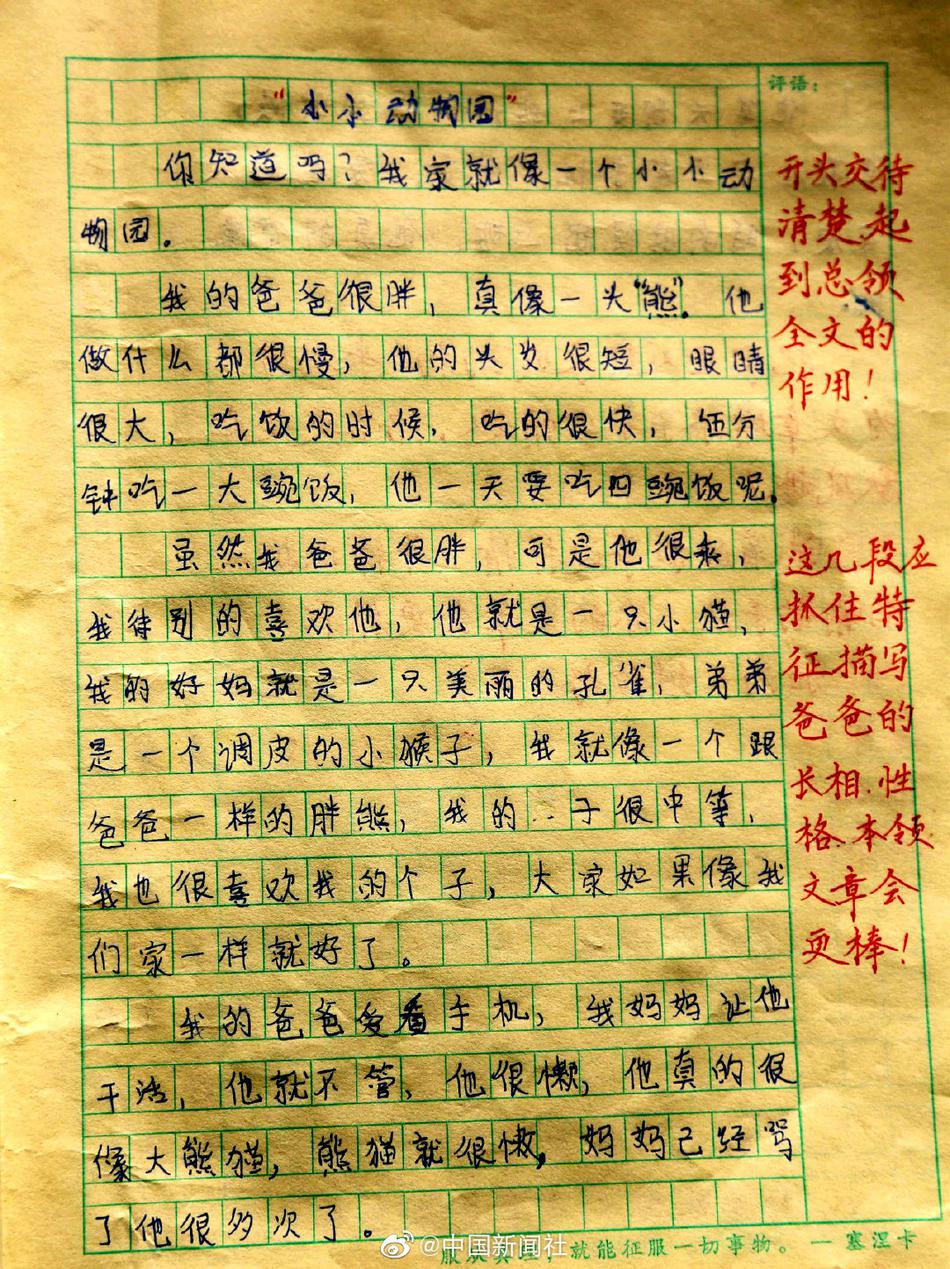 “小小动物园”
你知道吗？我家就像一个小小动
物园。
我的爸爸很胖，真像一头“熊”。他
做什么都很慢，他的头发很短，眼睛
很大，吃饭的时候，吃的很快，伍分
钟吃一大豌饭，他一天要吃四豌饭呢。
虽然我爸爸很胖，可是他很乖，
我待别的喜欢他，他就是一只小猫，
我的好妈就是一只美丽的孔雀，弟弟
是一个调皮的小猴子，我就像一个跟
爸爸一样的胖熊，我的子很中等，
我也很喜欢我的个子，大家如果像我
们家一样就好了。
我的爸爸爱看手机，我妈妈让他
干活，他就不管，他很懒，他真的很
像大熊猫，熊猫就很懒，妈妈己经骂
了他很多次了。
评语：
开头交待
清楚，起
到总领
全文的
作用！
这几段应
抓住特
征描写
爸爸的
长相、性
格、本领
文章会
更棒！
服从真理，就能征服一切事物。 — 塞涅卡
@中国新闻社